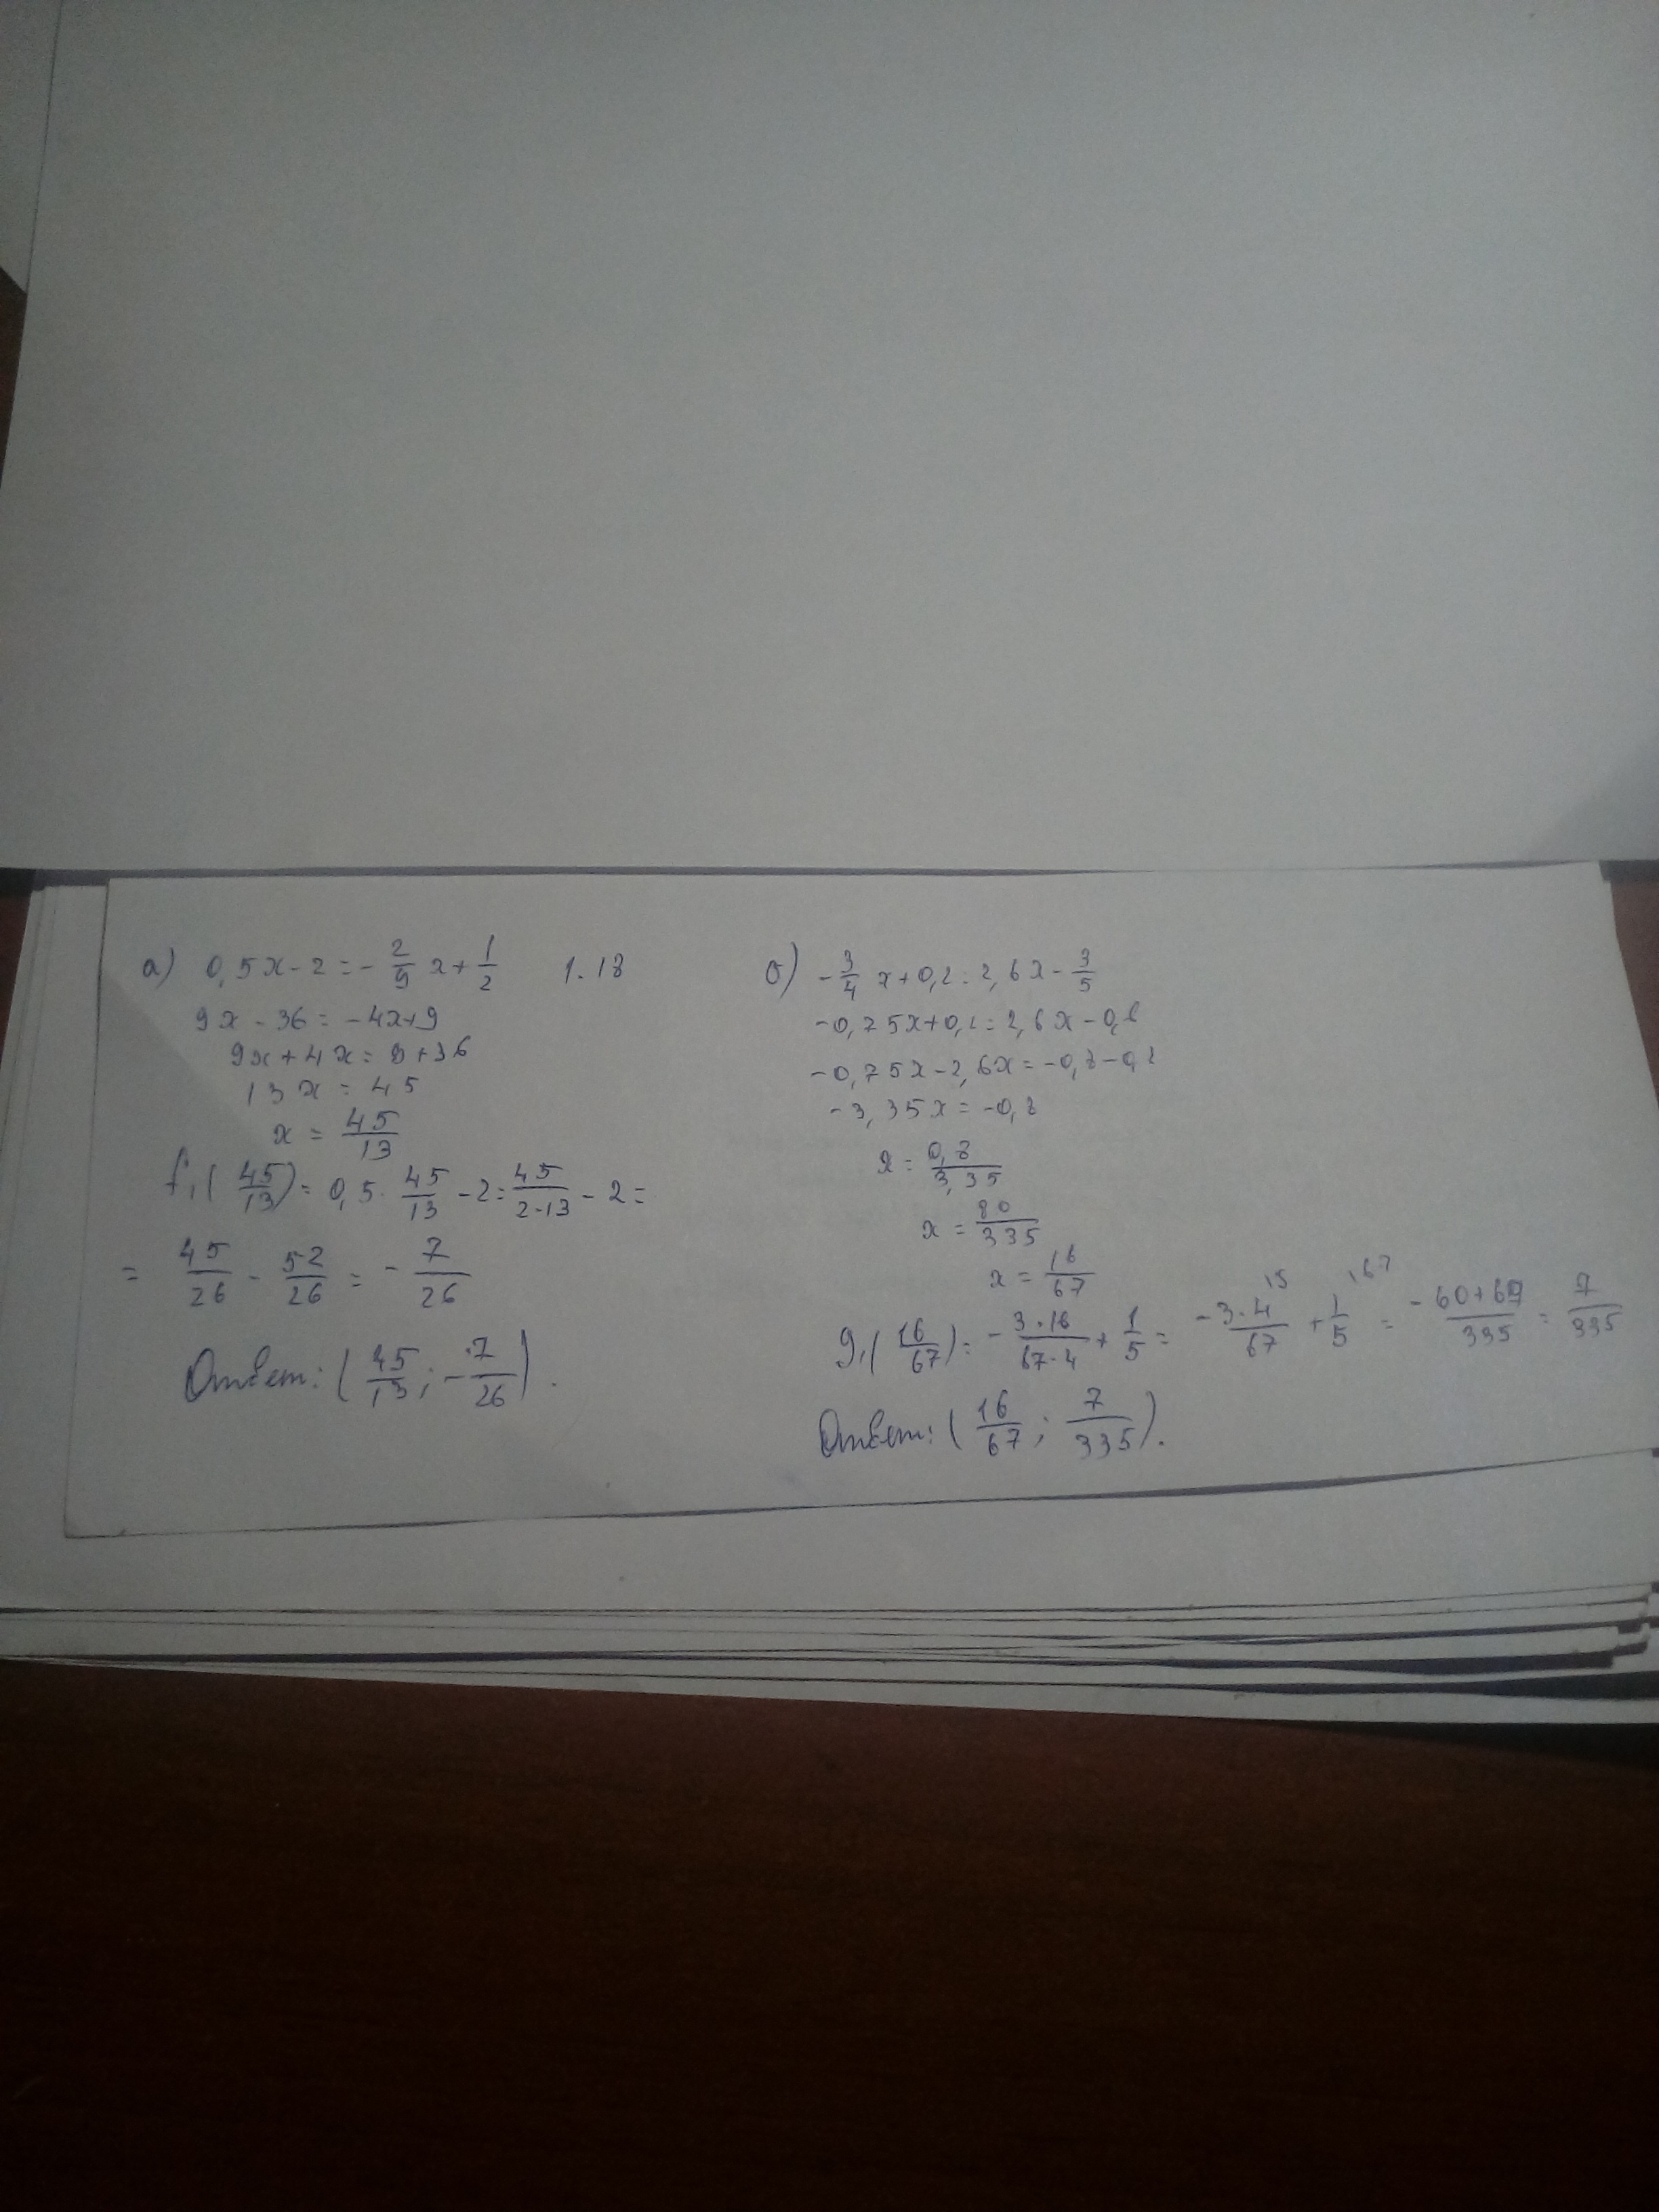 а) 0,5x - 2 = - 2/9 x + 1/2
1.18
9x - 36 = -4x + 9
9x + 4x = 9 + 36
13x = 45
x = 45/13
f₁(45/13) = 0,5 · 45/13 - 2 = 45/(2·13) - 2 =
= 45/26 - 52/26 = - 7/26
Ответ: (45/13; - 7/26).
б) - 3/4 x + 0,2 = 2,6x - 3/5
-0,75x + 0,2 = 2,6x - 0,6
-0,75x - 2,6x = -0,6 - 0,2
-3,35x = -0,8
x = 0,8/3,35
x = 80/335
x = 16/67
g₁(16/67) = - (3·16)/(67·4) + 1/5 = (-3·4)/67 ⁽⁵ + 1/5 ⁽⁶⁷ = (-60+67)/335 = 7/335
Ответ: (16/67; 7/335).